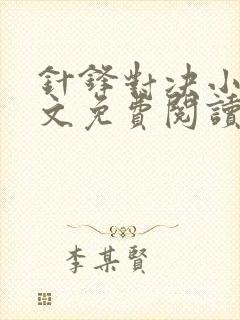 針鋒對決小
文免費閱讀
李某賢